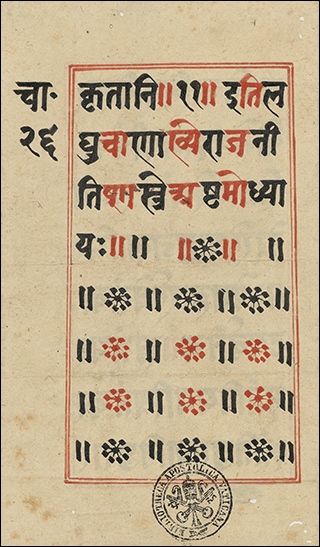 चा॰
२६
कृतानि॥११॥इतिल
घुचाणाव्यिराजनी
तिषास्त्रेअष्टमोध्या
यः॥॥ ॥ ॥ ॥
॥ ॥ ॥ ॥
॥ ॥ ॥ ॥
॥ ॥ ॥ ॥
॥ ॥ ॥ ॥
BIBLIOTHECA APOSTOLICA VATICANA